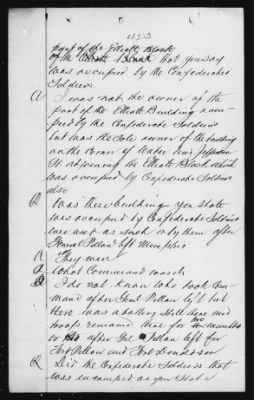 part of the Elliott Block
of the Elliott Block that you say
was occupied by the Confederate
Soldiers
A I was not the owner of the
part of the Elliott Building occu-
pied by the Confederate Soldiers
but was the sole owner of the building
on the Corner of Water and Jefferson
St adjoining the Elliott Block which
was occupied by Confederate Soldiers
also
Q Was there building you state
was occupied by Confederate Soldiers
ever used as such by them after
Genral Pillow left Memphis
A They were
Q What Command was it
A I do not know who took Com-
mand after Genl Pillow left but
there was a battery still there and
troops remained there for two months
or so after Gen Pillow left for
Fort Pillow and Fort Donderson
Q Did the Confederate Soldiers that
was encamped as you state